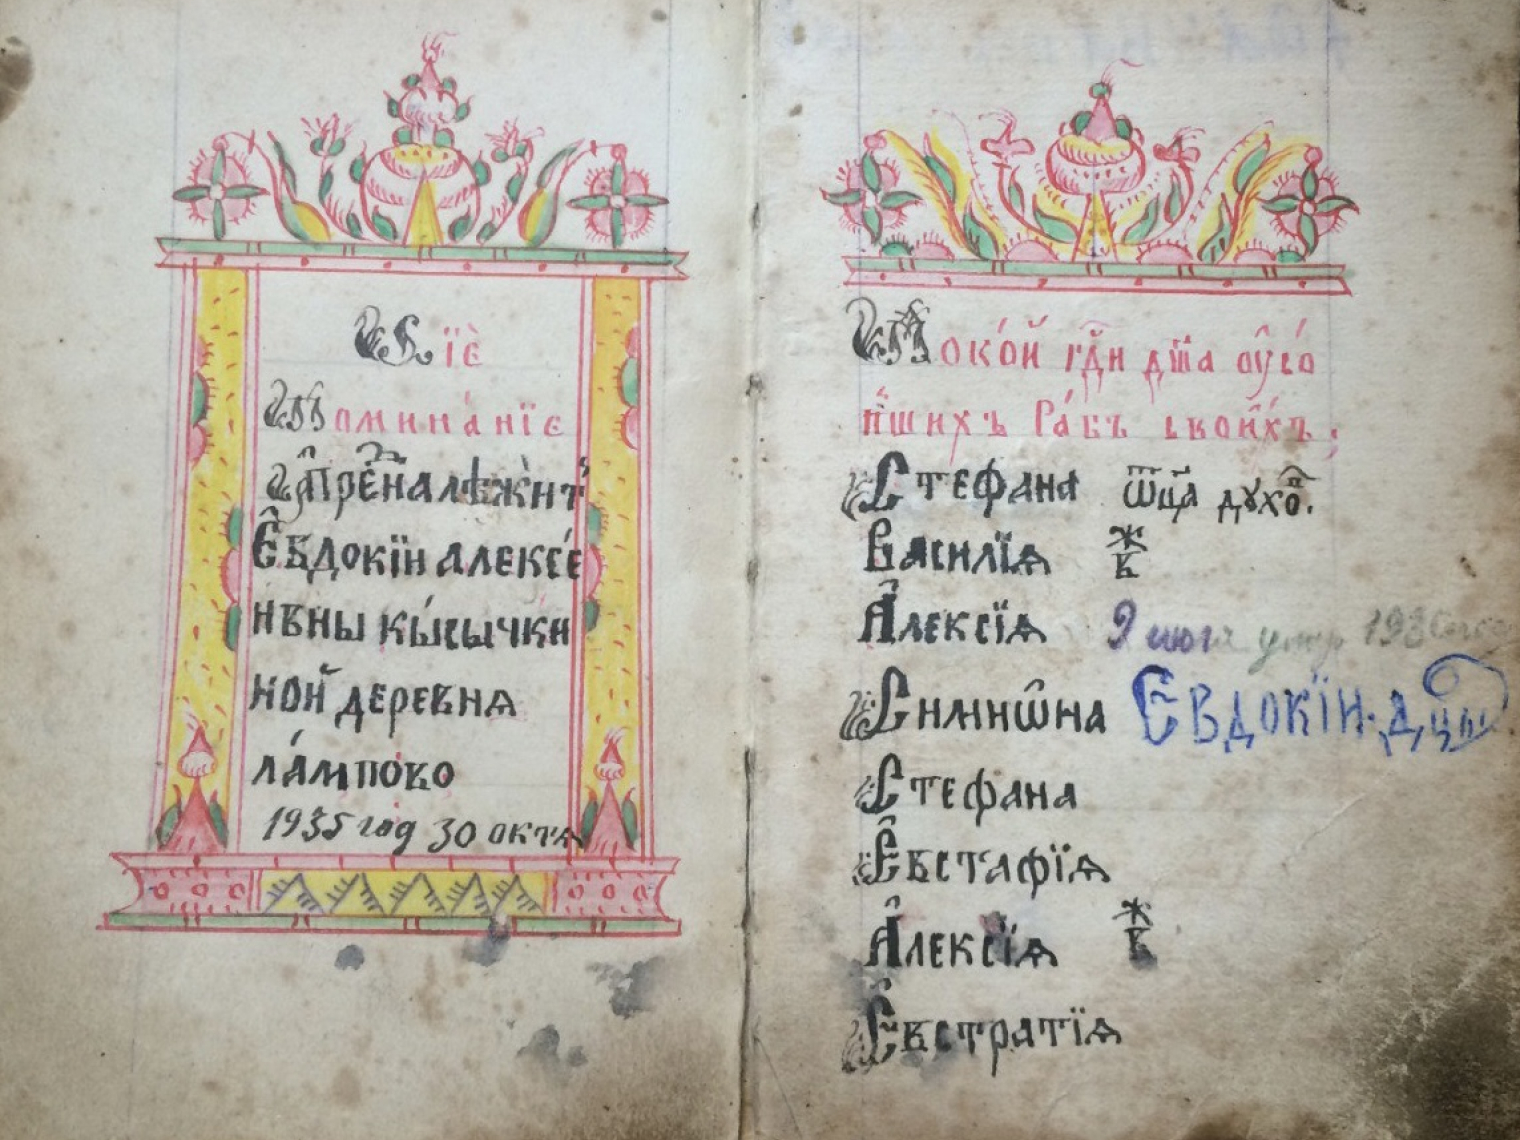 Сїѐ
Помина́нїе
Прена́лѣжит
Е҆вдокїи алексѐе
нъны кы́сычки
ной деревня
ла́мпово
1935 год 30 октя
Поко́й гд҃и дш҃а оу҆со́
пшихъ ра́бъ свои́хъ.
Стефана ѿца духо.
Василїѧ ж в
А҆лексїѧ 9 июля 193
Симиѡ҆на Е҆ВДОКЇИ. Дцы
Стефана
Е҆встафїѧ
А҆лексїѧ ж в
Е҆встратїѧ